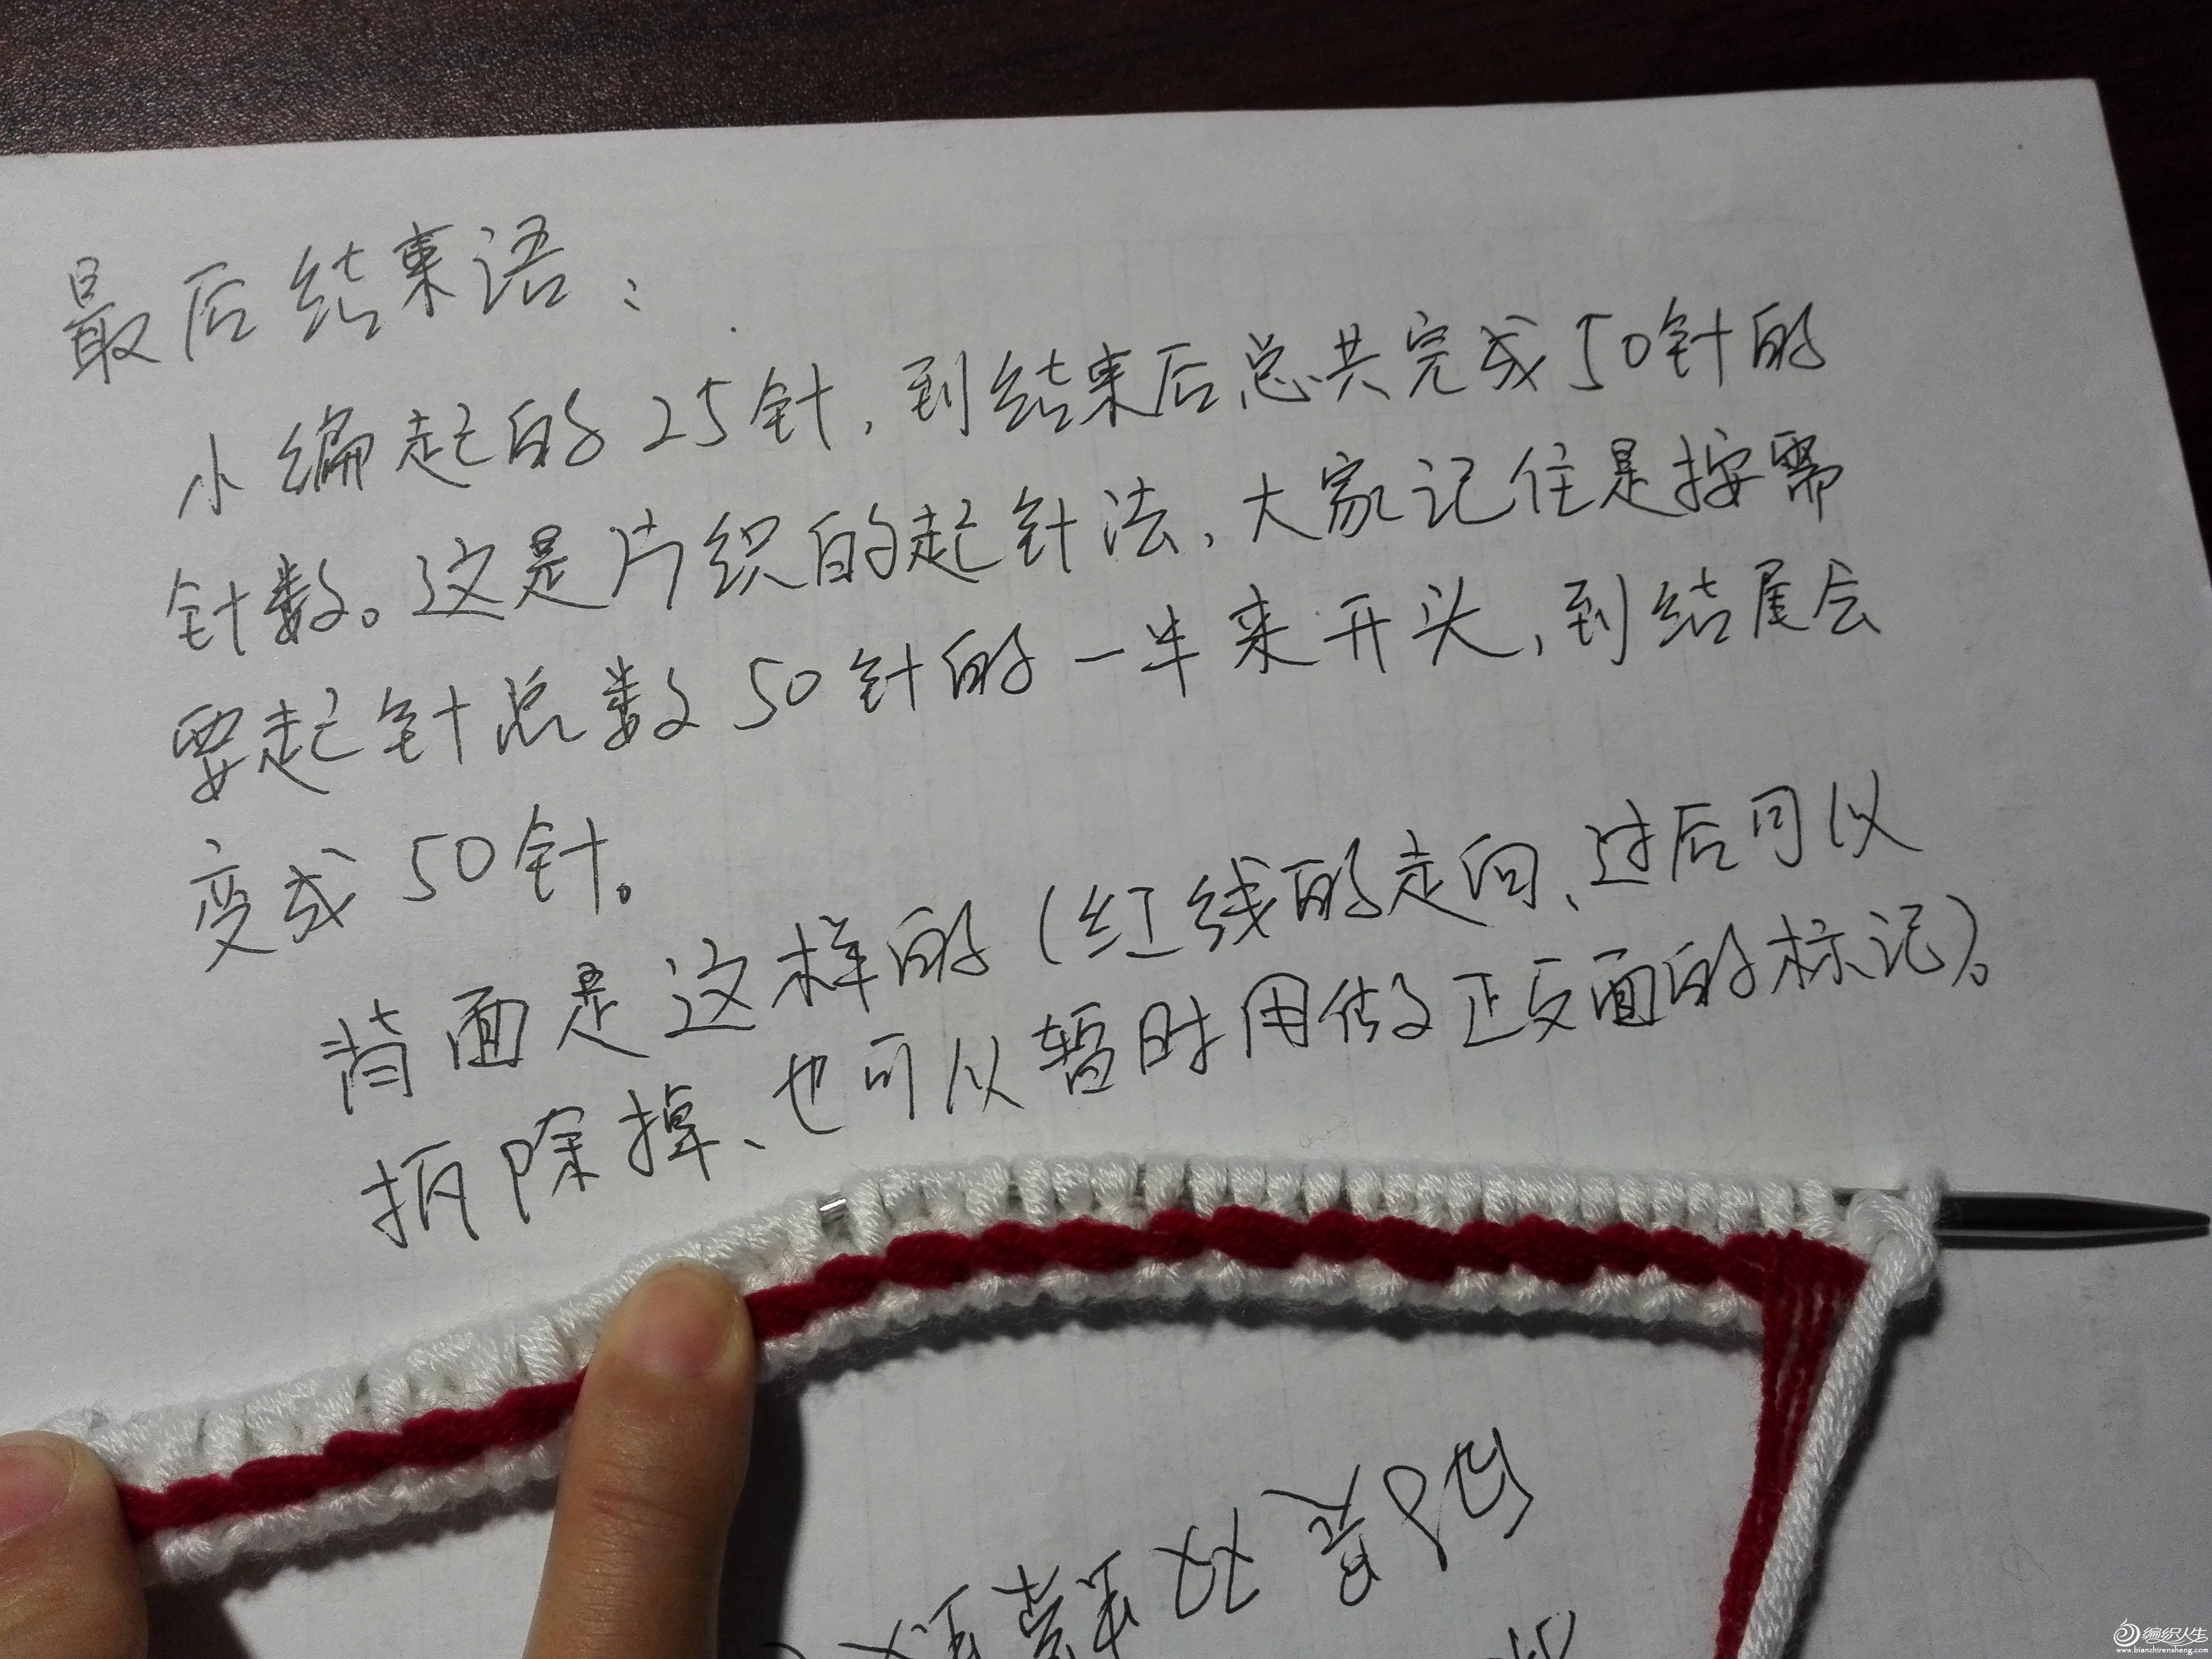 最后结束语：
小编起的25针，到结束后总共完成50针的
针数。这是片织的起针法，大家记住是按需
要起针总数50针的一半来开头，到结尾会
变成50针。
背面是这样的（红线的走向、过后可以
拆除掉、也可以暂时用做正反面的标记）。
编织人生
www.bianzhirensheng.com